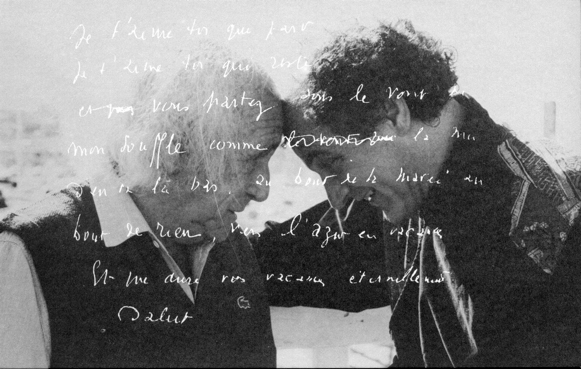 Je t'aime toi que pars
Je t'aime toi que reste
et vous partez dans le vent
mon souffle comme la
là bas. au bout de la marée au
bout de rien, vers l'azur en vacances
Et que dure vos vacances éternellement
Salut